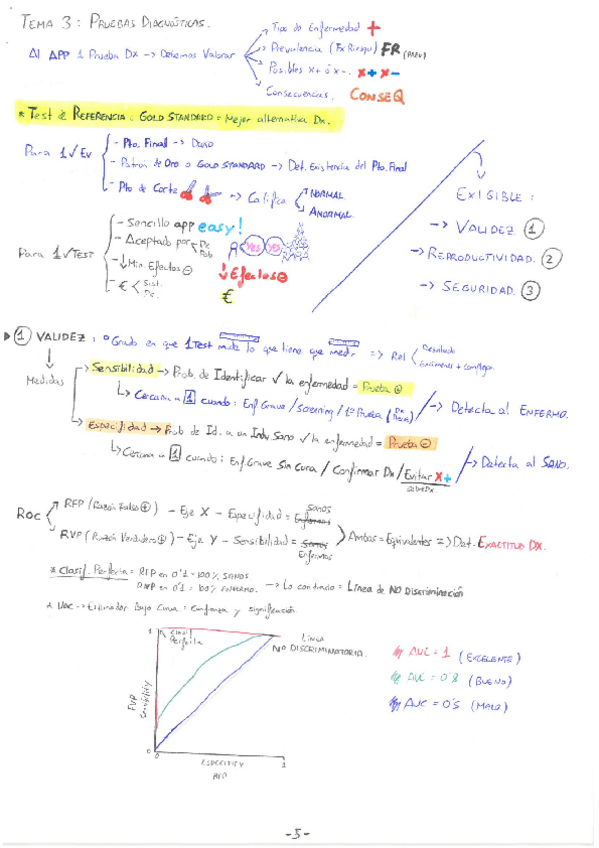 TEMA 3: PRUEBAS DIAGNÓSTICAS.
Al APP 1 Prueba Dx → Debemos Valorar
Tipo de Enfermedad +
Prevalencia (Fx Riesgo) FR
Posibles x+ ó x-. x+ x-
Consecuencias. CONSEQ
* Test de REFERENCIA: GOLD STANDARD = Mejor alternativa Dx.
Para 1 √ Ev
- Pto. Final → Duro
- Patrón de Oro o GOLD STANDARD → Det. Existencia del Pto. Final
- Pto de Corte → Califica
NORMAL
ANORMAL
EXIGIBLE:
→ VALIDEZ 1
→ REPRODUCTIVIDAD. 2
→ SEGURIDAD. 3
Para 1 √ TEST
- Sencillo app easy!
- Aceptado por
- ↓ Min. Efectos ⊖
- € < Sist. Pc.
YES YES
↓ Efectos ⊖
€
1 VALIDEZ: Grado en que 1 Test mide lo que tiene que medir => Rel
Medidas
Sensibilidad → Prob. de Identificar √ la enfermedad = Prueba ⊕
↳ Cercana a 1 cuando: Enf. Grave / Screening / 1ª Prueba → Detecta al ENFERMO.
Especifidad → Prob de Id. a un Indv Sano √ la enfermedad = Prueba ⊖
↳ Cercana a 1 cuando: Enf. Grave Sin cura / Confirmar Dx / Evitar x+ → Detecta al SANO.
ROC
RFP (Razón Falso ⊕) - Eje X - Especifidad = Enfermos SANOS
RVP (Razón Verdadero ⊕) - Eje Y - Sensibilidad = Sanos Enfermos
Ambas = Equivalentes => Det. EXACTITUD DX.
* Clasif. Perfecta = RFP en 0'1 = 100% SANOS
RVP en 0'1 = 100% ENFERMO. → Lo contrario = Línea de NO Discriminación
→ Estimador Bajo Curva = Confianza y significación.
1
Clasif Perfecta
LINEA NO DISCRIMINATORIA.
AUC = 1 (EXCELENTE)
AUC = 0'8 (BUENO)
AUC = 0'5 (MALO)
Sensitivity
0
0
1
RFP
-5-